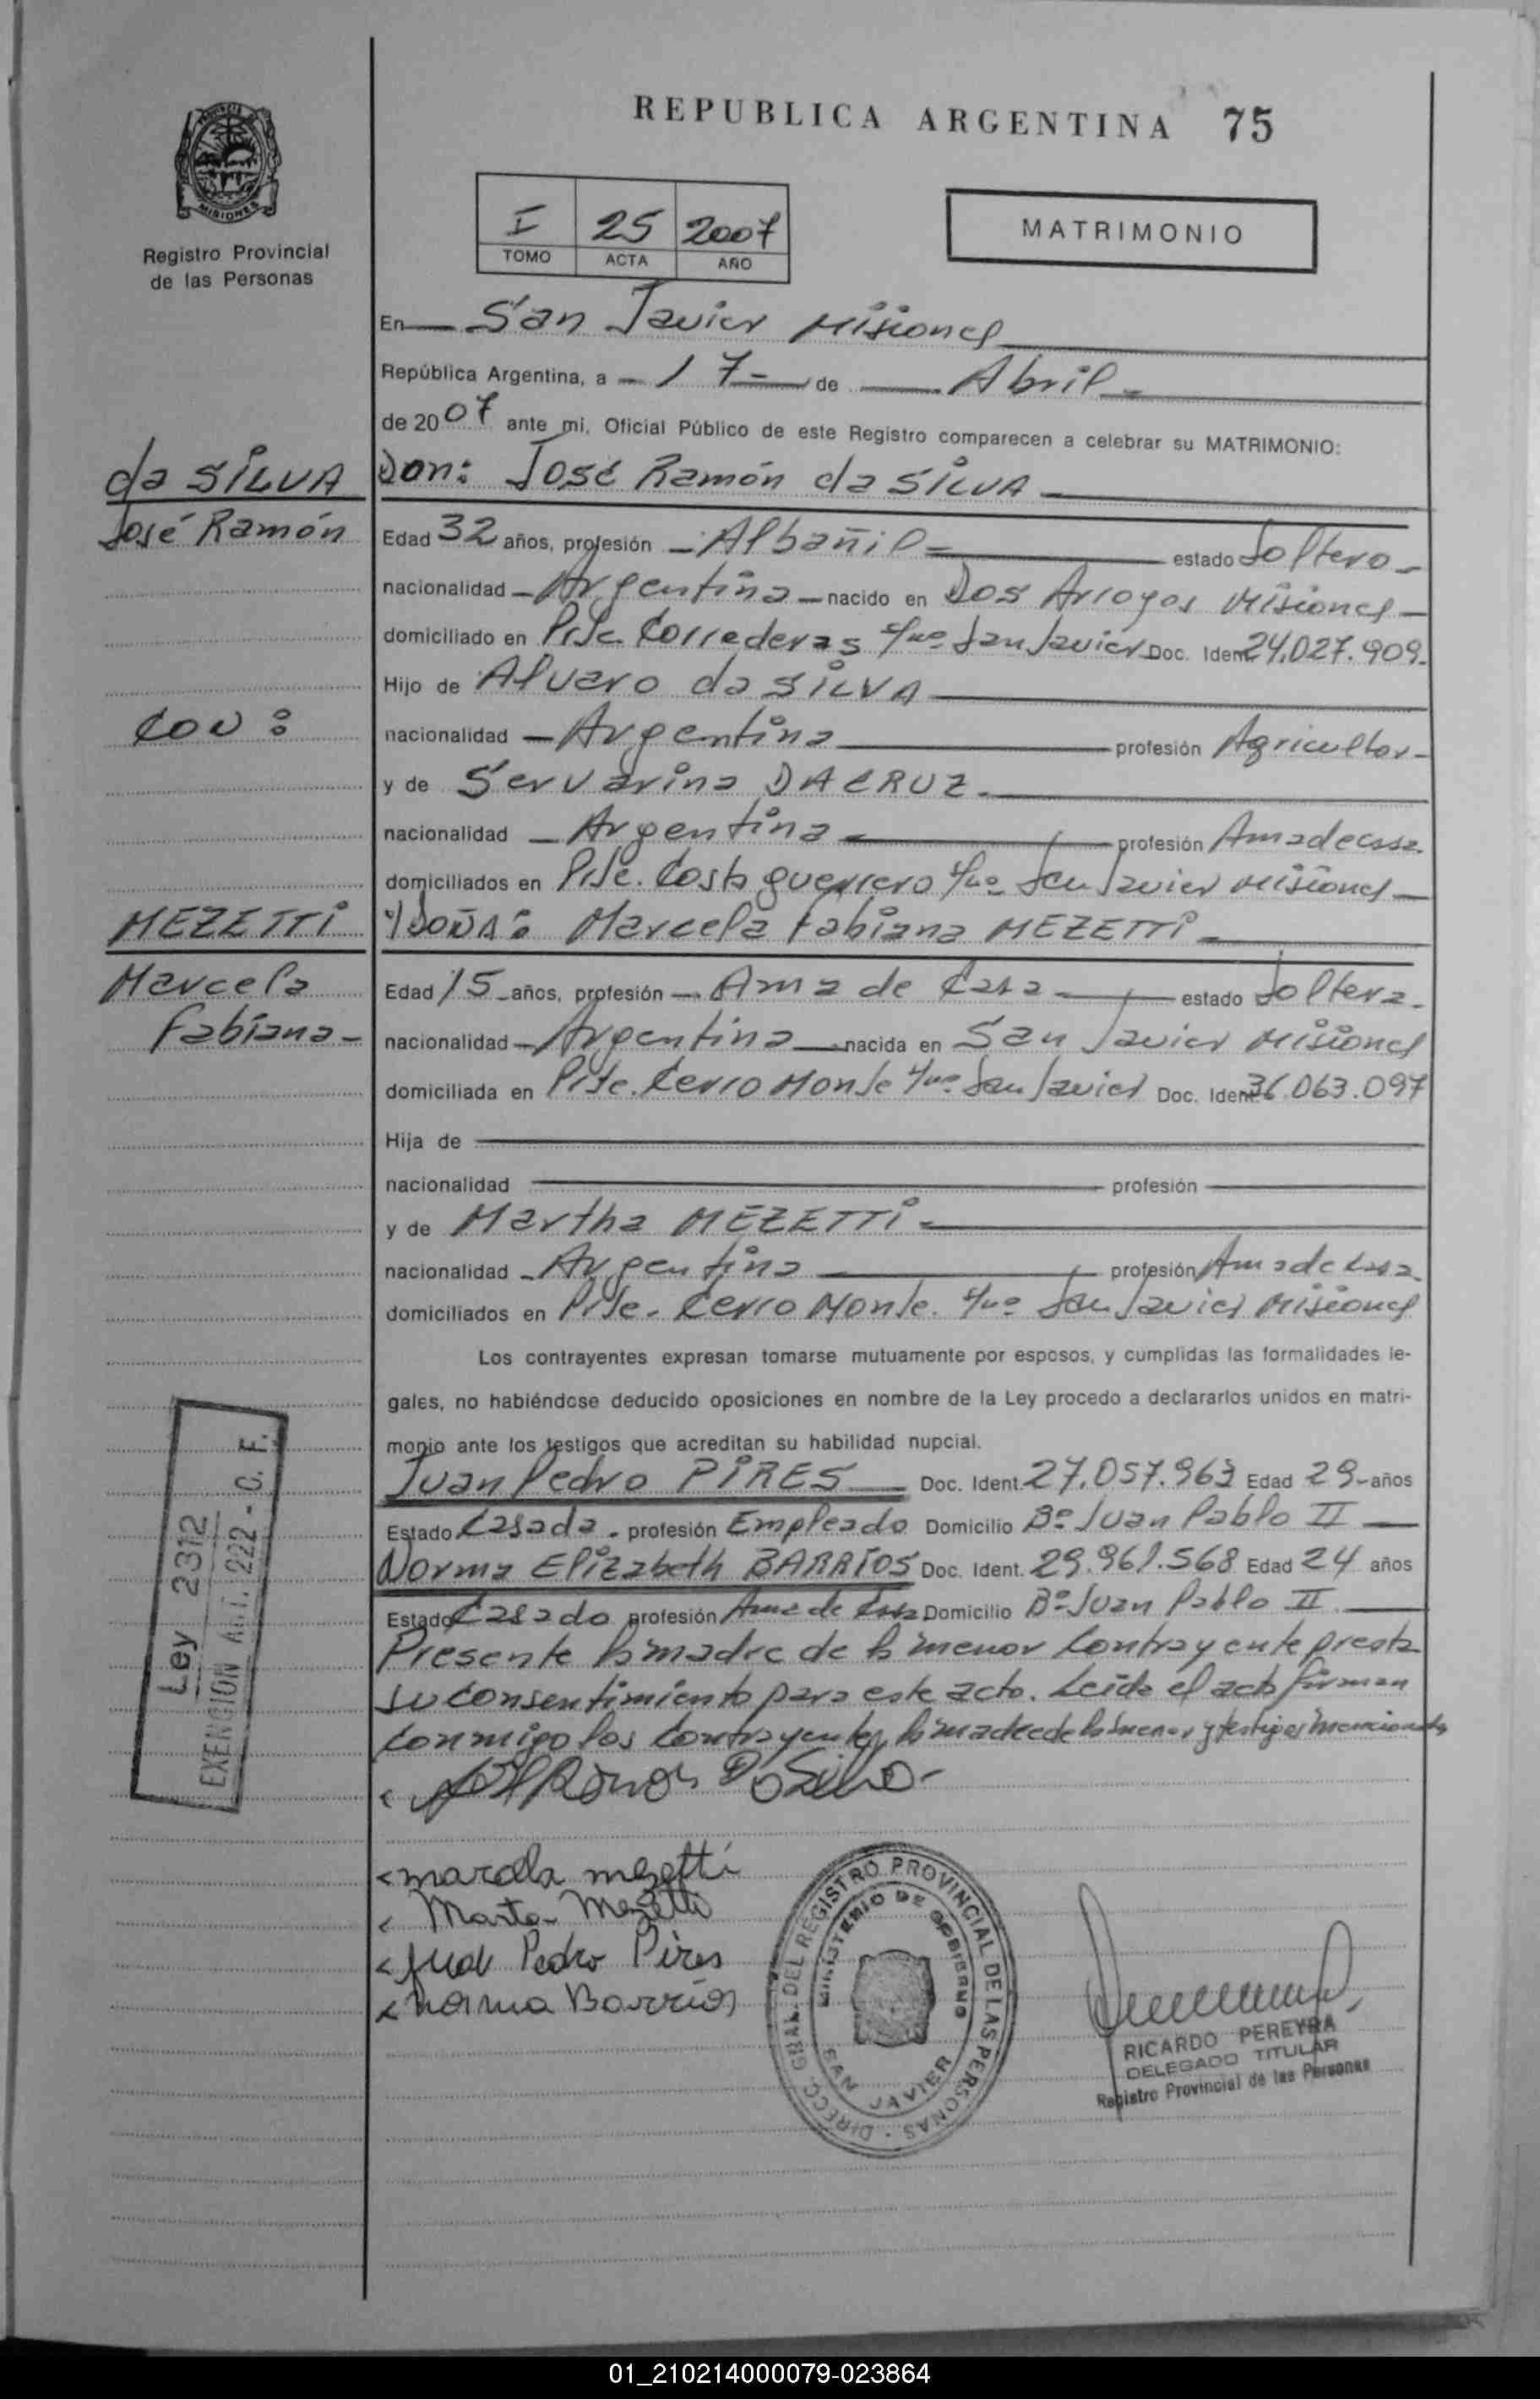 REPUBLICA ARGENTINA 75
MISIONES
Registro Provincial
de las Personas
I 25 2007
TOMO ACTA AÑO
MATRIMONIO
En San Javier Misiones
República Argentina, a 17 de Abril
de 2007 ante mi, Oficial Público de este Registro comparecen a celebrar su MATRIMONIO:
da SILVA
José Ramón
Don: José Ramón da SILVA
Edad 32 años, profesión Albañil estado Soltero
nacionalidad Argentina nacido en Dos Arroyos Misiones
domiciliado en Pje. Correderas San Javier Doc. Ident 24.027.909
Hijo de Alvaro da SILVA
CON:
nacionalidad Argentina profesión Agricultor
y de Servarina DACRUZ
nacionalidad Argentina profesión Ama de casa
domiciliados en Pje. Costa guerrero San Javier Misiones
MEZETTI
Marcela
Fabiana
y DOÑA: Marcela Fabiana MEZETTI
Edad 15 años, profesión Ama de Casa estado Soltera
nacionalidad Argentina nacida en San Javier Misiones
domiciliada en Pje. Cerro Monje San Javier Doc. Ident 36.063.097
Hija de
nacionalidad profesión
y de Martha MEZETTI
nacionalidad Argentina profesión Ama de Casa
domiciliados en Pje. Cerro Monje San Javier Misiones
Los contrayentes expresan tomarse mutuamente por esposos, y cumplidas las formalidades le-
gales, no habiéndose deducido oposiciones en nombre de la Ley procedo a declararlos unidos en matri-
monio ante los testigos que acreditan su habilidad nupcial.
Juan Pedro PIRES Doc. Ident. 27.057.963 Edad 29 años
Estado Casada profesión Empleado Domicilio Bº Juan Pablo II
Norma Elizabeth BARRIOS Doc. Ident. 29.961.568 Edad 24 años
Estado Casado profesión Ama de Casa Domicilio Bº Juan Pablo II
Presente la madre de la menor Contrayente presta
su consentimiento para este acto. Leido el acta firman
conmigo los Contrayentes la madre de la menor y testigos mencionados
Ley 2312
EXENCION Art. 222 - C. F.
marcela mezetti
Marta Mezetti
Juan Pedro Pires
Norma Barrios
DIRECC. GRAL. DEL REGISTRO PROVINCIAL DE LAS PERSONAS
MINISTERIO DE GOBIERNO
SAN JAVIER
RICARDO PEREYRA
DELEGADO TITULAR
Registro Provincial de las Personas
01_210214000079-023864